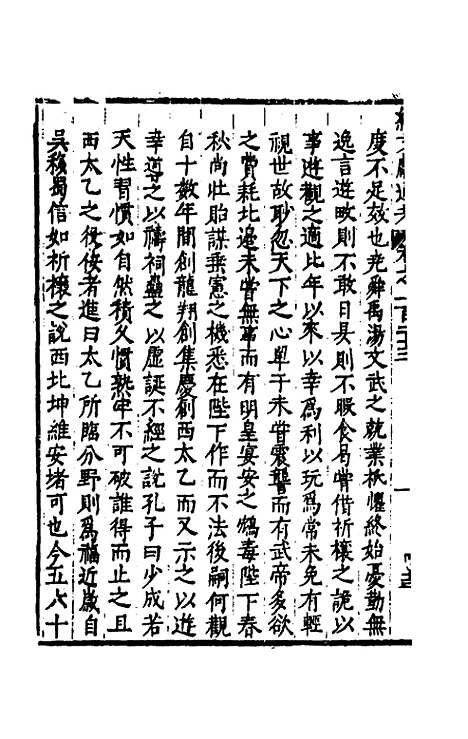 度不足效也堯舜禹湯文武之兢業祗懼終始憂勤無
逸言遊畋則不敢日昃則不暇食曷嘗借祈禳之說以
事遊觀之適比年以來以幸為利以玩為常未免有輕
視世故眇忽天下之心單于未嘗震讋而有武帝多欲
之費耗北邊未嘗無事而有明皇宴安之鴆毒陛下春
秋尚壯貽謀垂憲之機悉在陛下作而不法後嗣何觀
自十數年間創龍翔創集慶創西太乙而又示之以遊
幸導之以禱祠蠱之以虛誕不經之說孔子曰少成若
天性習慣如自然積久慣熟牢不可破誰得而止之且
西太乙之役佞者進曰太乙所臨分野則為福近歲自
吳移蜀信如祈禳之說西北坤維安堵可也今五六十